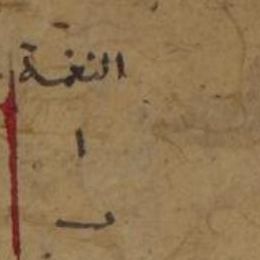 النغمة
ا
ب